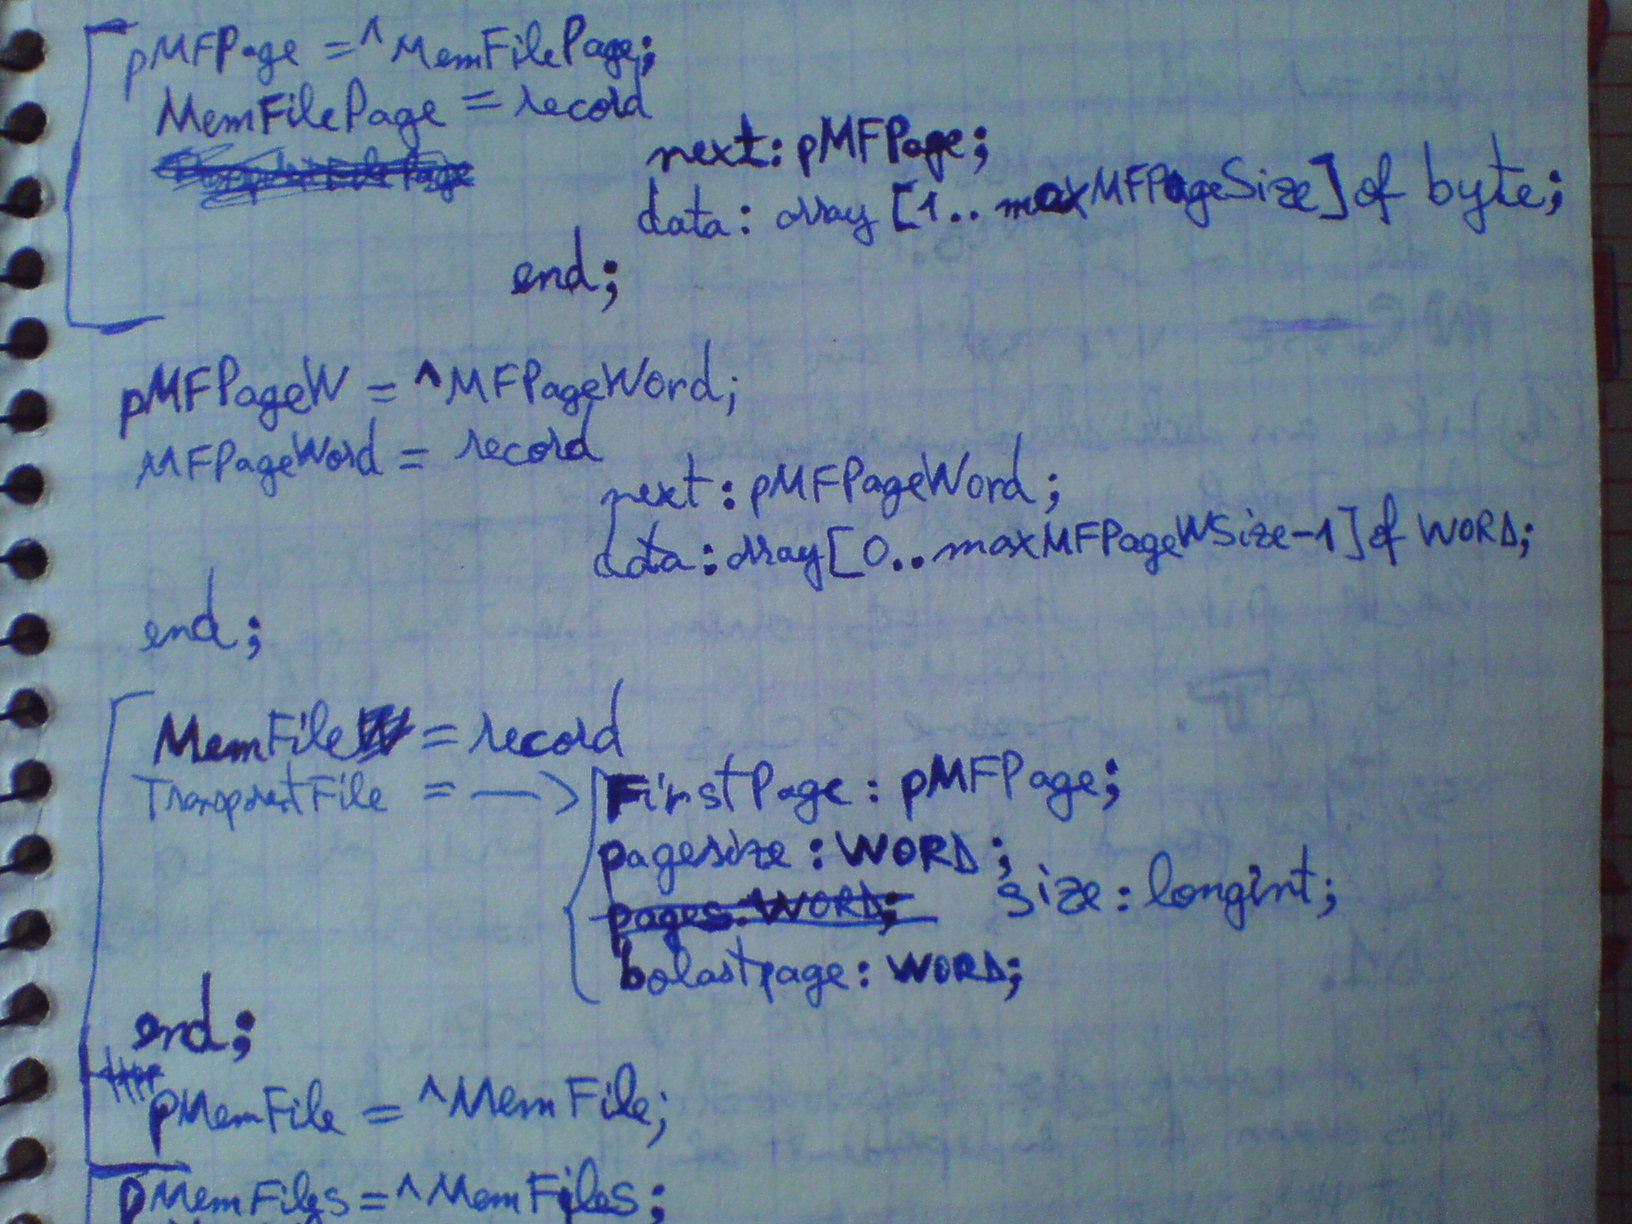 pMFPage = ^MemFilePage;
MemFilePage = record
next: pMFPage;
data: array [1..maxMFPageSize] of byte;
end;
pMFPageW = ^MFPageWord;
MFPageWord = record
next: pMFPageWord;
data: array [0..maxMFPageWSize-1] of WORD;
end;
MemFile = record
TransparentFile = —> FirstPage: pMFPage;
pagesize: WORD;
pages: WORD; size: longint;
bolastpage: WORD;
end;
pMemFile = ^MemFile;
pMemFiles = ^MemFiles;